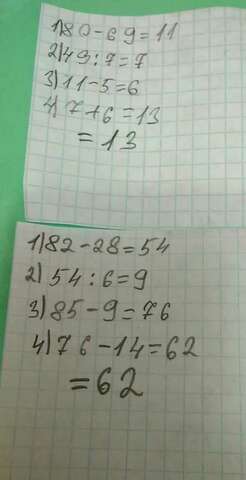 1) 80-69=11
2) 49:7=7
3) 11-5=6
4) 7+6=13
=13
1) 82-28=54
2) 54:6=9
3) 85-9=76
4) 76-14=62
=62